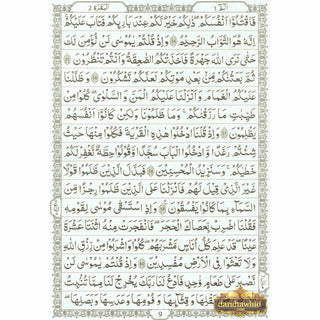 البقرة ٢
الم ١
فَاقْتُلُوا أَنْفُسَكُمْ ذَٰلِكُمْ خَيْرٌ لَكُمْ عِنْدَ بَارِئِكُمْ فَتَابَ عَلَيْكُمْ
إِنَّهُ هُوَ التَّوَّابُ الرَّحِيمُ وَإِذْ قُلْتُمْ يَا مُوسَىٰ لَنْ نُؤْمِنَ لَكَ
حَتَّىٰ نَرَى اللَّهَ جَهْرَةً فَأَخَذَتْكُمُ الصَّاعِقَةُ وَأَنْتُمْ تَنْظُرُونَ
ثُمَّ بَعَثْنَاكُمْ مِنْ بَعْدِ مَوْتِكُمْ لَعَلَّكُمْ تَشْكُرُونَ وَظَلَّلْنَا
عَلَيْكُمُ الْغَمَامَ وَأَنْزَلْنَا عَلَيْكُمُ الْمَنَّ وَالسَّلْوَىٰ كُلُوا مِنْ
طَيِّبَاتِ مَا رَزَقْنَاكُمْ وَمَا ظَلَمُونَا وَلَٰكِنْ كَانُوا أَنْفُسَهُمْ
يَظْلِمُونَ وَإِذْ قُلْنَا ادْخُلُوا هَٰذِهِ الْقَرْيَةَ فَكُلُوا مِنْهَا حَيْثُ
شِئْتُمْ رَغَدًا وَادْخُلُوا الْبَابَ سُجَّدًا وَقُولُوا حِطَّةٌ نَغْفِرْ لَكُمْ
خَطَايَاكُمْ وَسَنَزِيدُ الْمُحْسِنِينَ فَبَدَّلَ الَّذِينَ ظَلَمُوا قَوْلًا
غَيْرَ الَّذِي قِيلَ لَهُمْ فَأَنْزَلْنَا عَلَى الَّذِينَ ظَلَمُوا رِجْزًا مِنَ
السَّمَاءِ بِمَا كَانُوا يَفْسُقُونَ وَإِذِ اسْتَسْقَىٰ مُوسَىٰ لِقَوْمِهِ
فَقُلْنَا اضْرِبْ بِعَصَاكَ الْحَجَرَ فَانْفَجَرَتْ مِنْهُ اثْنَتَا عَشْرَةَ
عَيْنًا قَدْ عَلِمَ كُلُّ أُنَاسٍ مَشْرَبَهُمْ كُلُوا وَاشْرَبُوا مِنْ رِزْقِ اللَّهِ
وَلَا تَعْثَوْا فِي الْأَرْضِ مُفْسِدِينَ وَإِذْ قُلْتُمْ يَا مُوسَىٰ لَنْ
نَصْبِرَ عَلَىٰ طَعَامٍ وَاحِدٍ فَادْعُ لَنَا رَبَّكَ يُخْرِجْ لَنَا مِمَّا تُنْبِتُ
بَقْلِهَا وَقِثَّائِهَا وَفُومِهَا وَعَدَسِهَا وَبَصَلِهَا
9
dartibawhid